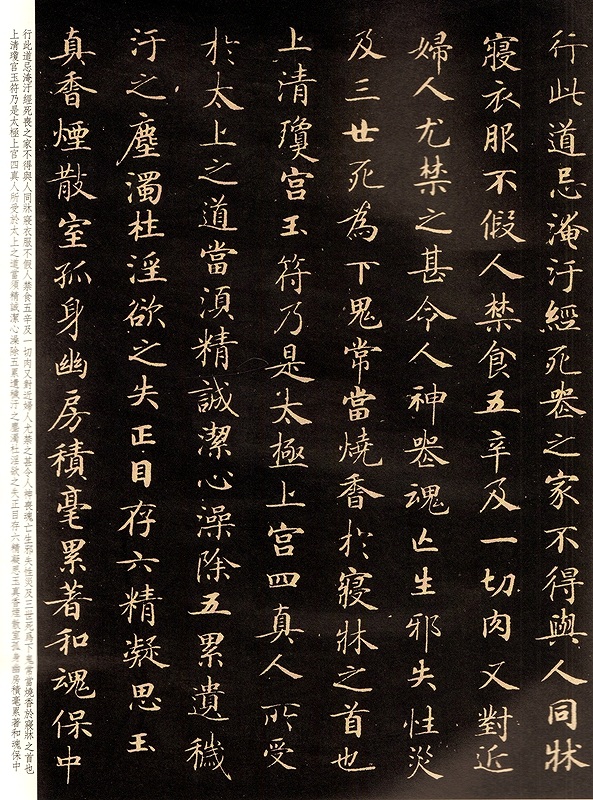 行此道忌淹汙經死喪之家不得與人同牀
寢衣服不假人禁食五辛及一切肉又對近
婦人尤禁之甚令人神喪魂亡生邪失性災
及三世死為下鬼常當燒香於寢牀之首也
上清瓊宮玉符乃是太極上宮四真人所受
於太上之道當須精誠潔心澡除五累遺穢
汙之塵濁杜淫欲之失正目存六精凝思玉
真香煙散室孤身幽房積毫累著和魂保中
行此道忌淹汙經死喪之家不得與人同牀寢衣服不假人禁食五辛及一切肉又對近婦人尤禁之甚令人神喪魂亡生邪失性災及三世死爲下鬼常當燒香於寢牀之首也
上清瓊宮玉符乃是太極上宮四真人所受於太上之道當須精誠潔心澡除五累遺穢汙之塵濁杜淫欲之失正目存六精凝思玉真香煙散室孤身幽房積毫累著和魂保中